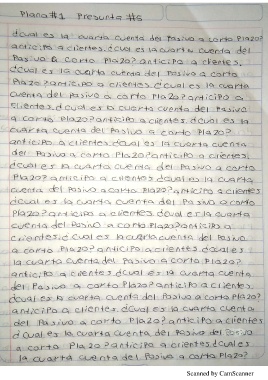 Plana #1 Pregunta #5
¿cual es la cuarta cuenta del Pasivo a corto Plazo?
anticipo a clientes. ¿cual es la cuarta cuenta del
Pasivo a corto Plazo? anticipo a clientes.
¿cual es la cuarta cuenta del Pasivo a corto
Plazo? anticipo a clientes. ¿cual es la cuarta
cuenta del Pasivo a corto Plazo? anticipo a
clientes. ¿cual es la cuarta cuenta del Pasivo
a corto Plazo? anticipo a clientes. ¿cual es la
cuarta cuenta del Pasivo a corto Plazo?
anticipo a clientes ¿cual es la cuarta cuenta
del Pasivo a corto Plazo? anticipo a clientes.
¿cual es la cuarta cuenta del Pasivo a corto
Plazo? anticipo a clientes ¿cual es la cuarta
cuenta del Pasivo a corto Plazo? anticipo a clientes
¿cual es la cuarta cuenta del Pasivo a corto
Plazo? anticipo a clientes ¿cual es la cuarta
cuenta del Pasivo a corto Plazo? anticipo a
clientes ¿cual es la cuarta cuenta del Pasivo
a corto Plazo? anticipo a clientes. ¿cual es
la cuarta cuenta del Pasivo a corto Plazo?
anticipo a clientes ¿cual es la cuarta cuenta
del Pasivo a corto Plazo? anticipo a clientes.
¿cual es la cuarta cuenta del Pasivo a corto Plazo?
anticipo a clientes. ¿cual es la cuarta cuenta
del Pasivo a corto Plazo? anticipo a clientes
¿cual es la cuarta cuenta del Pasivo del Pasivo
a corto Plazo? anticipo a clientes ¿cual es
la cuarta cuenta del Pasivo a corto Plazo?
Scanned by CamScanner